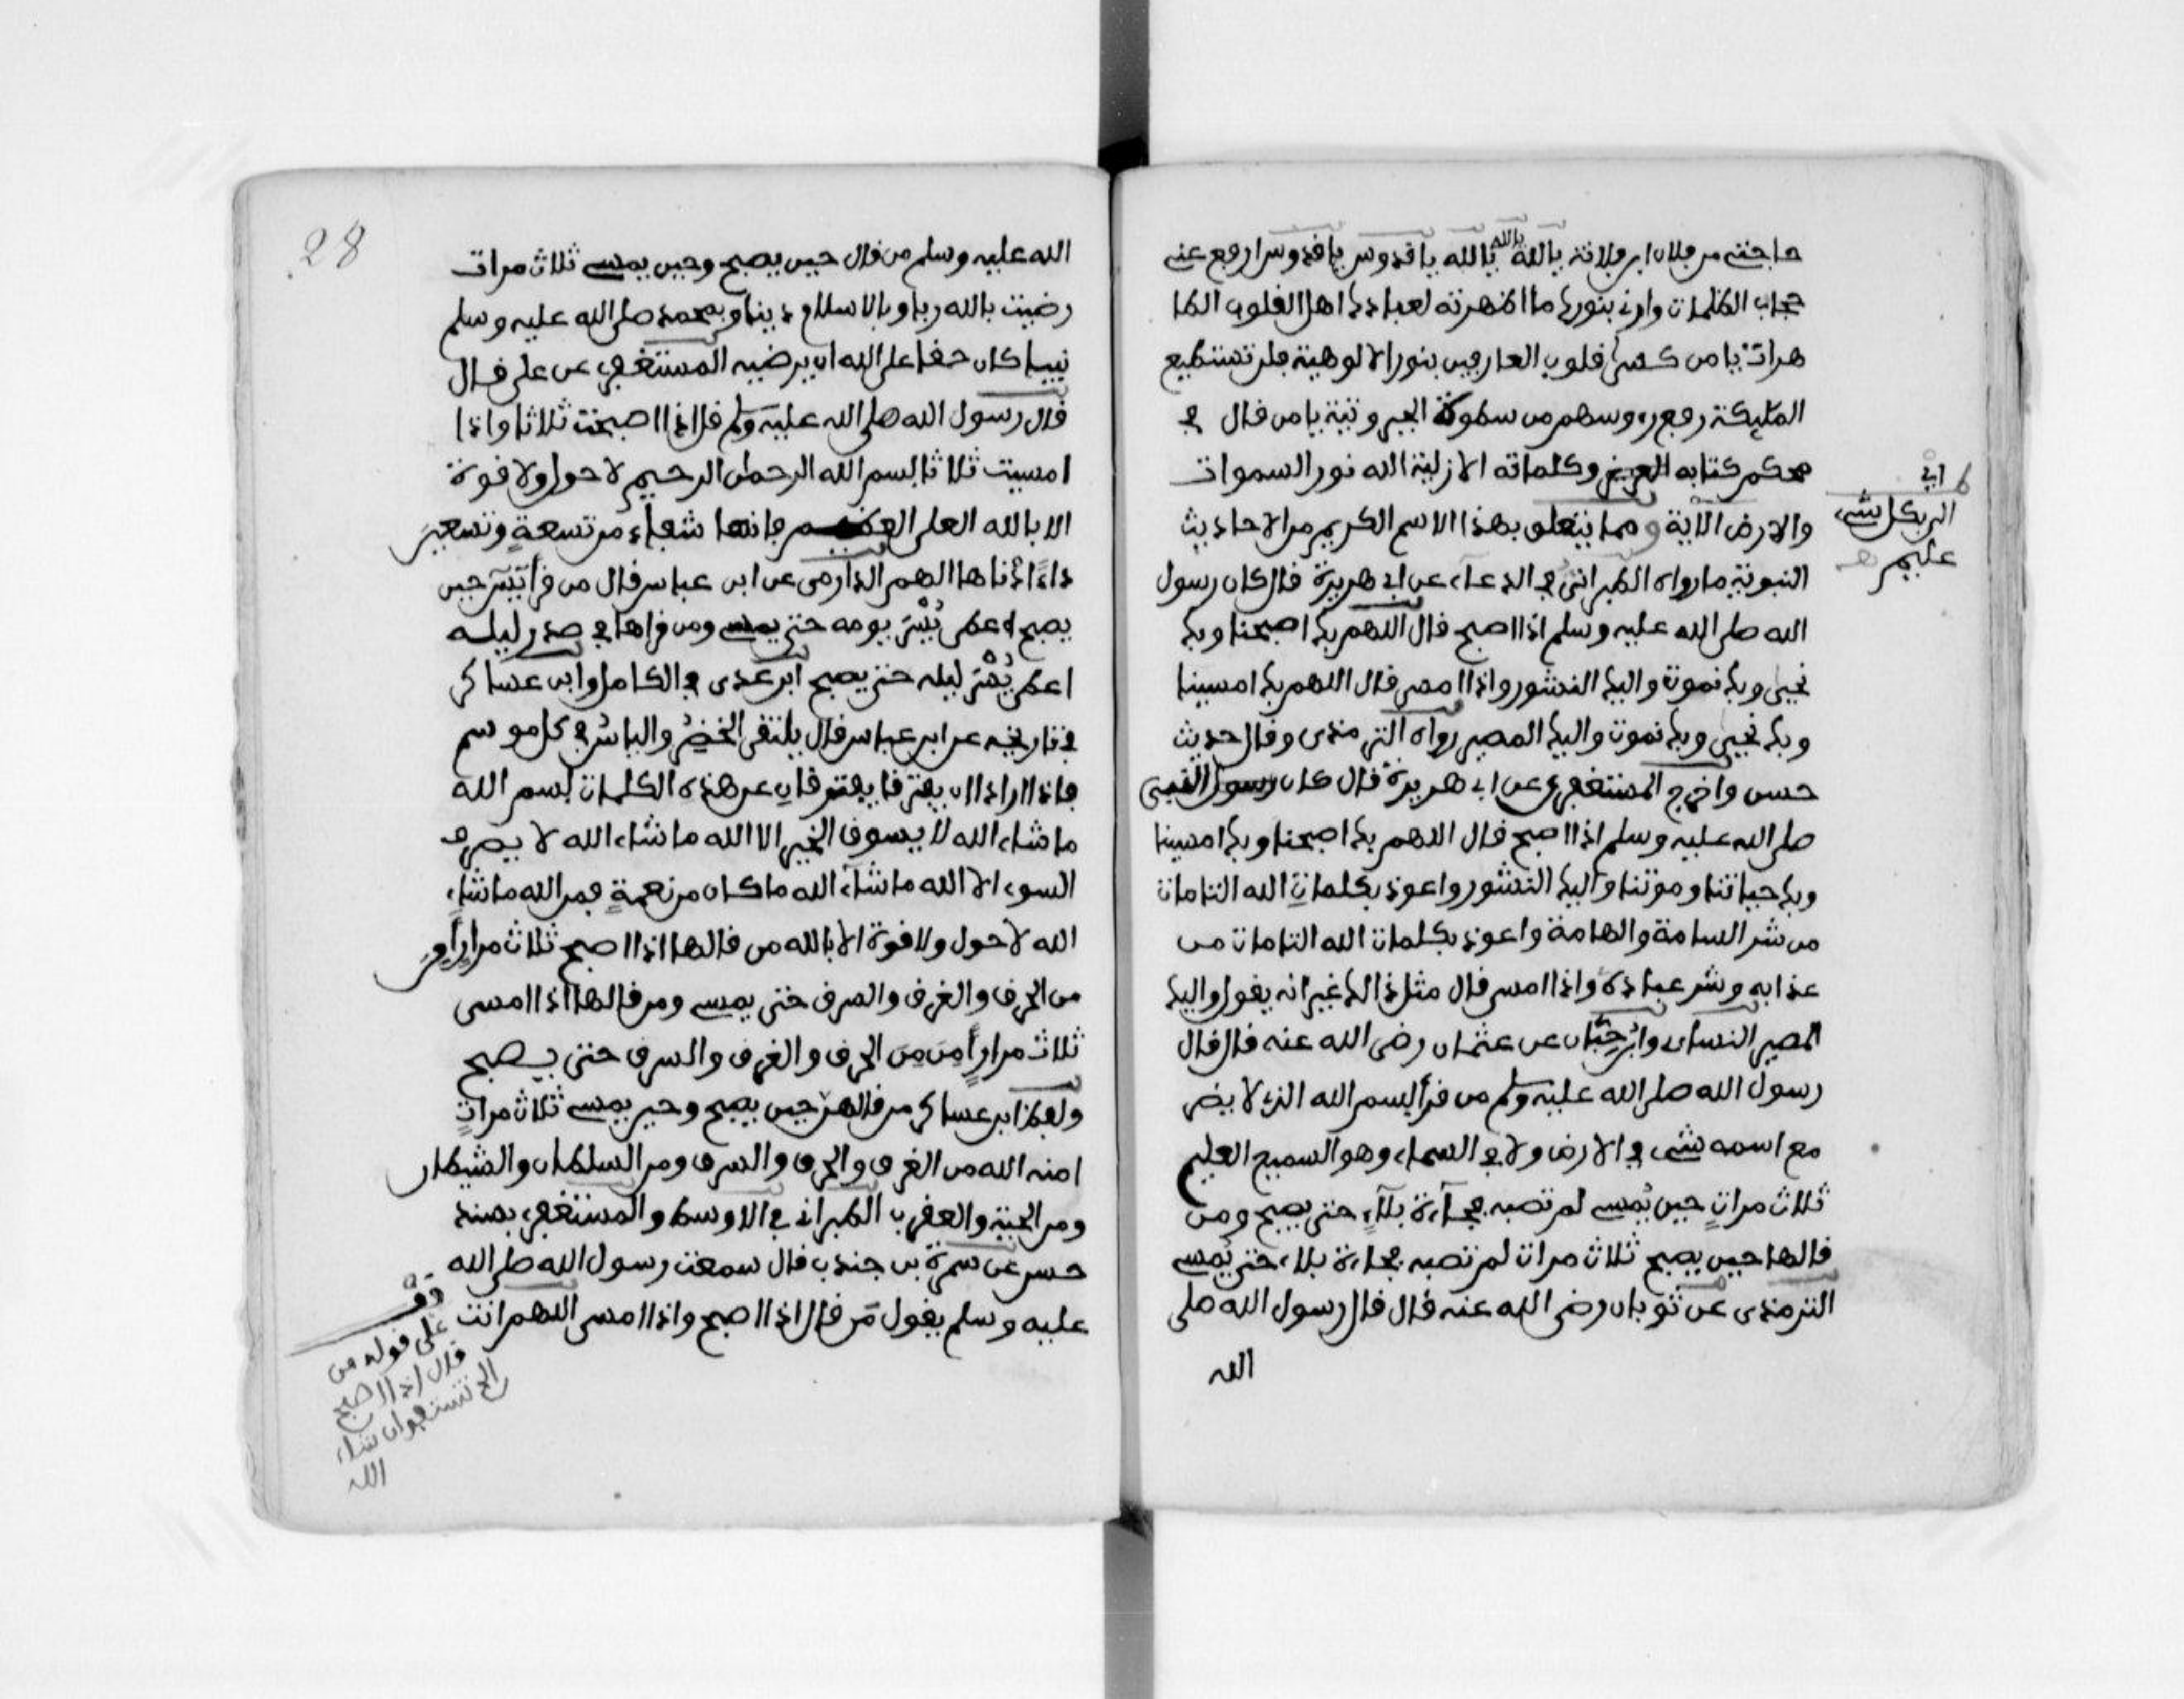 حاجتي من فلان ابن فلانة يا الله يا الله يا الله يا قدوس يا قدوس ارفع عني
حجاب الظلمات وارني بنورك ما اظهرته لعبادك اهل القلوب الطا
هرات يا من كسى قلوب العارفين بنور الالوهية فلن تستطيع
المليكة رفع رءوسهم من سطوة الجبروتية يا من قال في
محكم كتابه العزيز وكلماته الازلية الله نور السموات
والارض الآية ومما يتعلق بهذا الاسم الكريم من الاحاديث
النبوية ما رواه الطبراني في الدعاء عن ابي هريرة قال كان رسول
الله صلى الله عليه وسلم اذا اصبح قال اللهم بك اصبحنا وبك
نحيى وبك نموت واليك النشور واذا امسى قال اللهم بك امسينا
وبك نحيى وبك نموت واليك المصير رواه الترمذى وقال حديث
حسن واخرج المستغفري عن ابي هريرة قال كان النبي
صلى الله عليه وسلم اذا اصبح قال اللهم بك اصبحنا وبك امسينا
وبك حياتنا وموتنا واليك النشور واعوذ بكلماتِ الله التامات
من شر السامة والهامة واعوذ بكلمات الله التامات من
عذابه وشر عباده واذا امسى قال مثل ذالك غير انه يقول واليك
المصير النساءى وابن حبّان عن عثمان رضى الله عنه قال قال
رسول الله صلى الله عليه وسلم من قرأ بسم الله الذي لا يضر
مع اسمه شىء في الارض ولا في السماء وهو السميع العليم
ثلاث مراتٍ حين يُمسي لم تصبه فجآءة بلآءٍ حتى يصبح ومن
قالها حين يصبح ثلاث مرات لم تصبه فجاءة بلاء حتى يُمسي
الترمذى عن ثوبان رضى الله عنه قال قال رسول الله صلى
الله
الى
الى بكل شيء
عليم
28
الله عليه وسلم من قال حين يصبح وحين يمسي ثلاث مرات
رضيت بالله ربا وبالاسلام دينا وبمحمد صلى الله عليه وسلم
نبيا كان حقا على الله ان يرضيه المستغفري عن على قال
قال رسول الله صلى الله عليه وسلم قال اذا اصبحت ثلاثا واذا
امسيت ثلاثا بسم الله الرحمن الرحيم لا حول ولا قوة
الا بالله العلى العظيم فانها شفاء من تسعةٍ وتسعين
داءً اذناها الهم الدارمى عن ابن عباس قال من قرأ يَسَ حين
يصبح اعطى يُسْرَ يومه حتى يمسي ومن قراها في صدر ليله
اعطى يُسْرَ ليله حتى يصبح ابن عدى في الكامل وابن عساكر
في تاريخه عن ابن عباس قال يلتقى الخضر والياسُ في كل موسم
فاذا ارادا ان يفترقا يفترقانِ عن هذه الكلمات بسم الله
ما شاء الله لا يسوق الخير الا الله ما شاء الله لا يصرف
السوء الا الله ما شآء الله ما كان من نعمةٍ فمن الله ما شاء
الله لا حول ولا قوة الا بالله من قالها اذا اصبح ثلاث مراراً امِنَ
من الحرق والغرق والسرق حتى يمسي ومن قالها اذا امسى
ثلاث مراراً مِنَ مِنَ الحرق والغرق والسرق حتى يصبح
ولفظ ابن عساكر من قالهن حين يصبح وحين يمسي ثلاث مراتٍ
امنه الله من الغرق والحرق والسرق ومن السلطان والشيطان
ومن الحية والعقرب الطبرانى في الاوسط والمستغفري بسند
حسن عن سمرة بن جندب قال سمعت رسول الله صلى الله
عليه وسلم يقول مَن قال اذا اصبح واذا امسى اللهم انت
قف
على قوله من
قال اذا اصبح
الخ تستفد ان شاء
الله